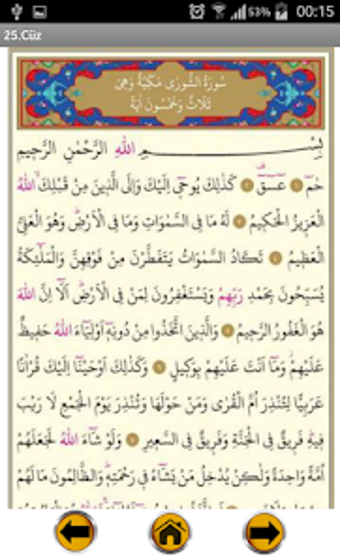 53% 00:15
25.Cüz
سُورَةُ الشُّورٰى مَكِّيَّةٌ وَهِيَ
ثَلَاثٌ وَخَمْسُونَ اٰيَةً
بِسْمِ اللّٰهِ الرَّحْمٰنِ الرَّحِيمِ
حٰمٓ ۝ عٓسٓقٓ ۝ كَذٰلِكَ يُوحٖٓي اِلَيْكَ وَاِلَى الَّذٖينَ مِنْ قَبْلِكَۙ اللّٰهُ
الْعَزٖيزُ الْحَكٖيمُ ۝ لَهُ مَا فِي السَّمٰوَاتِ وَمَا فِي الْاَرْضِؕ وَهُوَ الْعَلِيُّ
الْعَظٖيمُ ۝ تَكَادُ السَّمٰوَاتُ يَتَفَطَّرْنَ مِنْ فَوْقِهِنَّ وَالْمَلٰٓئِكَةُ
يُسَبِّحُونَ بِحَمْدِ رَبِّهِمْ وَيَسْتَغْفِرُونَ لِمَنْ فِي الْاَرْضِؕ اَلَٓا اِنَّ اللّٰهَ
هُوَ الْغَفُورُ الرَّحٖيمُ ۝ وَالَّذٖينَ اتَّخَذُوا مِنْ دُونِهٖٓ اَوْلِيَٓاءَ اللّٰهُ حَفٖيظٌ
عَلَيْهِمْؗ وَمَٓا اَنْتَ عَلَيْهِمْ بِوَكٖيلٍ ۝ وَكَذٰلِكَ اَوْحَيْنَٓا اِلَيْكَ قُرْاٰنًا
عَرَبِيًّا لِتُنْذِرَ اُمَّ الْقُرٰى وَمَنْ حَوْلَهَا وَتُنْذِرَ يَوْمَ الْجَمْعِ لَا رَيْبَ
فٖيهِؕ فَرٖيقٌ فِي الْجَنَّةِ وَفَرٖيقٌ فِي السَّعٖيرِ ۝ وَلَوْ شَٓاءَ اللّٰهُ لَجَعَلَهُمْ
اُمَّةً وَاحِدَةً وَلٰكِنْ يُدْخِلُ مَنْ يَشَٓاءُ فٖي رَحْمَتِهٖؕ وَالظَّالِمُونَ مَا لَهُمْ